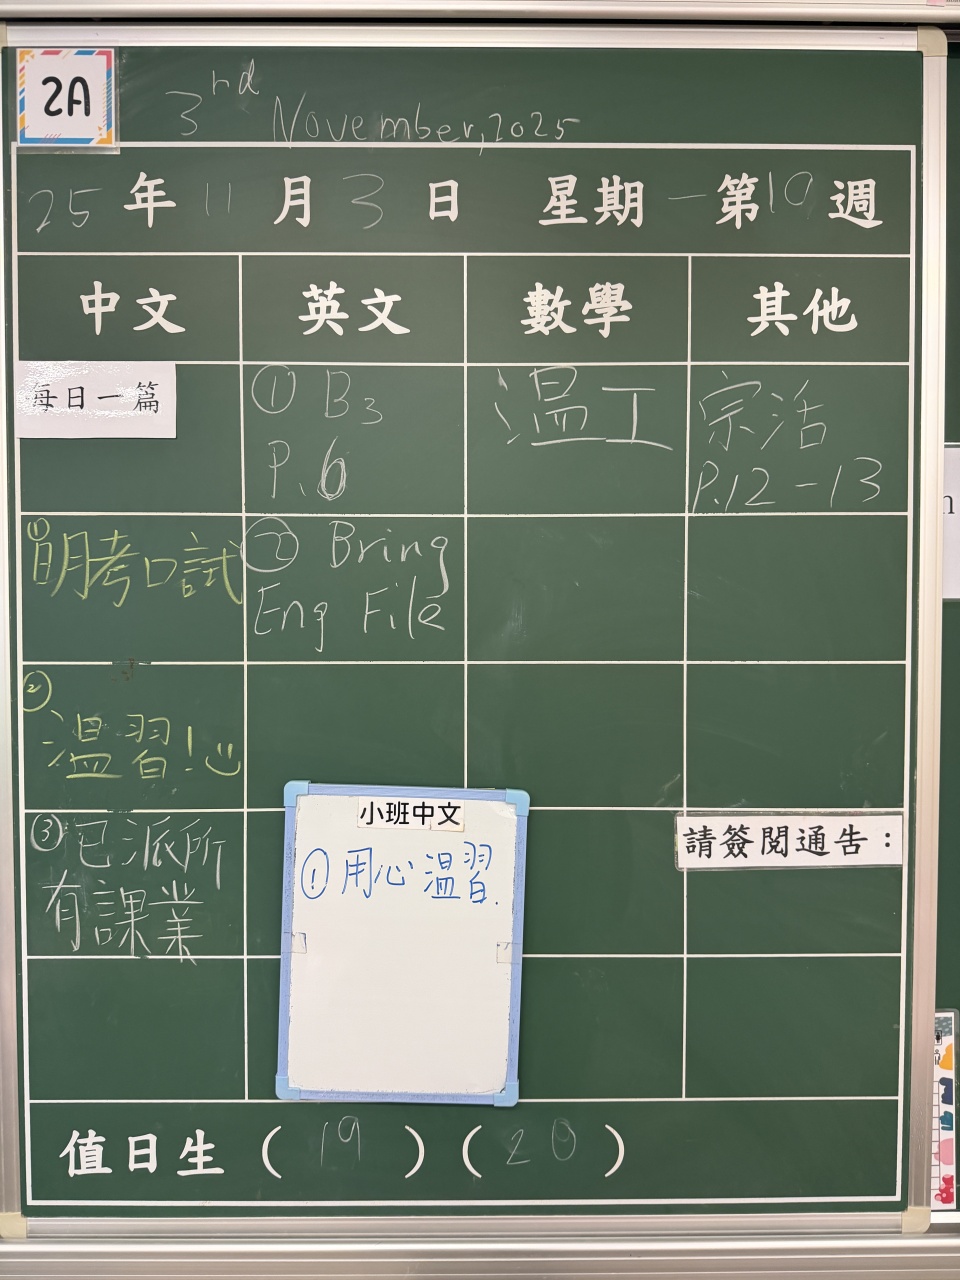 2A
3rd November, 2025
25 年 11 月 3 日 星期 一 第 10 週
中文 英文 數學 其他
每日一篇
① 明考口試
② 溫習!
③ 已派所
有課業
① B3
P.6
② Bring
Eng File
溫工
宗活
P.12-13
小班中文
① 用心溫習.
請簽閱通告:
值日生 ( 19 ) ( 20 )